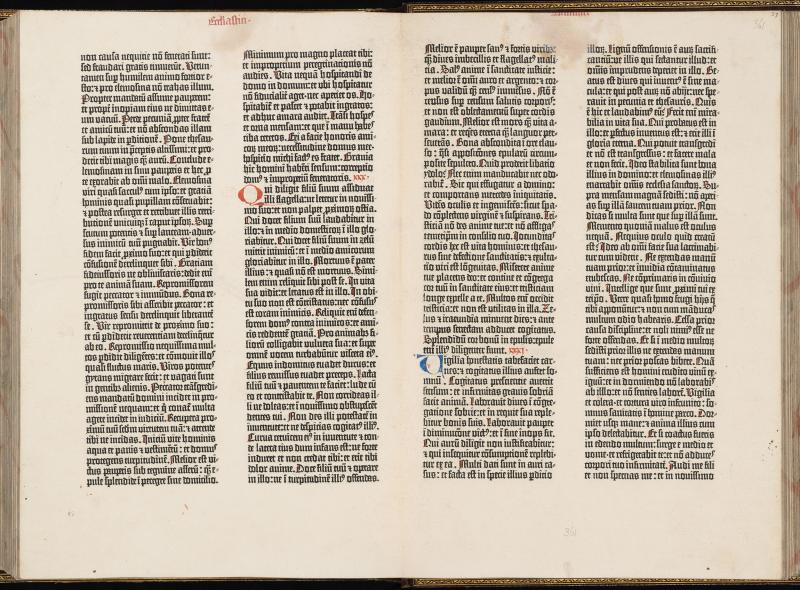 Ecclesiastic⁹
non causa nequitie nō fenerati sunt:
sed fraudari gratis timuerūt. Verūtamen
sup humilem animo fortior esto:
⁊ pro elemosina nō trahas illum.
Propter mandatū assume pauperem:
et propt̄ inopiam eius ne dimittas eum
vacuū. Perde pecuniā ppter fratrē
et amicū tuū: et nō abscondas illam
sub lapide in pditionē. Pone thesaurum
tuum in p̄ceptis altissimi: et proderit
tibi magis q̄ȝ aurū. Conclude elemosinam
in sinu paupis: et hec p
te exorabit ab om̄i malo. Elemosina
viri quasi saccul⁹ cum ipso: et gratiā
hominis quasi pupillam cōseruabit:
⁊ postea resurget et retribuet illis retributionē
unicuiq; ī caput ipsoꝝ. Sup
scutum potentis ⁊ sup lanceam aduersus
inimicū tuū pugnabit. Vir bon⁹
fidem facit p̄ximo suo: et qui pdiderit
cōfusionē derelinquet sibi. Gratiam
fideiussoris ne obliuiscaris: dedit enī
pro te animā suam. Repromissorem
fugit peccator ⁊ immūdus. Bona repromissoris
sibi ascribit peccator: et
ingratus sensu derelinquet liberantē
se. Vir repromittit de proximo suo:
et cū pdiderit reuerentiam derelinquetur
ab eo. Repromissio nequissima multos
pdidit diligētes: et cōmouit illos
quasi fluctus maris. Viros potentes
gyrans migrare fecit: et vagati sunt
in gentib; alienis. Peccator trāsgrediens
mandatū domini incidet in promissionē
nequam: et q̄ conat̄ multa
agere incidet in iudiciū. Recupera proximū
scdm̄ virtutem tuā: ⁊ attende
tibi ne incidas. Iniciū vite hominis
aqua et panis ⁊ vestimētū: et domus
protegens turpitudinē. Melior est victus
paupis sub tegmine asserū: q̄ȝ epule
splendide ī peregre sine domicilio.
Minimum pro magno placeat tibi:
et improperium peregrinationis nō
audies. Vita nequā hospitandi de
domo in domum: et ubi hospitatur
nō fiducialit̄ aget: nec aperiet os. Hospitabit̄
et pascet ⁊ potabit ingratos:
et adhuc amara audiet. Trāsi hospes
et orna mensam: et que ī manu habes
ciba ceteros. Exi a facie honoris amicoꝝ
meoꝝ: necessitudine domus mee
hospitio michi fact⁹ es frater. Grauia
hec homini habēti sensum: correptio
dom⁹ ⁊ improperiū feneratoris. XXX.
Qui diligit filiū suum assiduat
illi flagella: ut letetur in nouissimo
suo: et non palpet p̄ximoꝝ ostia.
Qui docet filium suū laudabitur in
illo: ⁊ in medio domesticoꝝ ī illo gloriabitur.
Qui docet filiū suum in zelū
mittit inimicū: et ī medio amicorum
gloriabitur in illo. Mortuus ē pater
illius: ⁊ quasi nō est mortuus. Similem
enim reliquit sibi post se. In vita
sua vidit: et letatus est in illo. In obitu
suo non est cōtristatus: nec cōfusus
est coram inimicis. Reliquit enī defensorem
dom⁹ contra inimicos: et amicis
reddentē gratiā. Pro animab; filiorū
colligabit vulnera sua: et super
omnē vocem turbabūtur viscera ei⁹.
Equus indomitus euadet durus: et
filius remissus euadet preceps. Lacta
filiū tuū ⁊ pauentem te faciet: lude cū
eo et contristabit te. Non corrideas illi
ne doleas: et ī nouissimo obstupescēt
dentes tui. Non des illi potestatē in
iuuentute: et ne despicias cogitat⁹ illi⁹.
Curua ceruicem ei⁹ in iuuentute ⁊ tonde
latera eius dum infans est: ne forte
induret et non credat tibi: et erit tibi
dolor anime. Doce filiū tuū ⁊ operare
in illo: ne ī turpitudinē illi⁹ offendas.
Melior ē paup et san⁹ ⁊ fortis virib;:
q̄ȝ diues imbecillis et flagellat⁹ malitia.
Sal⁹ anime ī sanctitate iusticie:
et melior ē om̄i auro et argento: ⁊ corpus
validū q̄ȝ cens⁹ immēsus. Nō ē
census sup censum salutis corporis:
et non est oblectamentū supra cordis
gaudium. Melior est mors q̄ȝ vita amara:
et requies eterna q̄ȝ languor perseuerans.
Bona abscondita ī ore clauso:
q̄si appositiones epularū circumposite
sepulcro. Quid proderit libatio
ydolo: Nec enim manducabit nec odorabit.
Sic qui effugatur a domino:
et comportans mercedes iniquitatis.
Videns oculis et ingemiscēs: sicut spado
cōplectens virginē ⁊ suspirans. Tristiciam
nō des anime tue: et nō affligas
temetipsum in consilio tuo. Iocunditas
cordis hec est vita hominis: et thesaurus
sine defectione sanctitatis: ⁊ exultatio
viri est lōgeuitas. Miserere anime
tue placens deo: et contine et cōgrega
cor tuū in sanctitate eius: et tristiciam
longe expelle a te. Multos enī occidit
tristicia: et non est utilitas in illa. Zelus
⁊ iracundia minuent dies: ⁊ ante
tempus senectam adducet cogitatus.
Splendidū cor bonū in epulis: epule
enī illi⁹ diligenter fiunt. XXXI.
Vigilia honestatis tabefaciet carnes:
⁊ cogitatus illius aufert somnū.
Cogitatus presciencie auertit
sensum: et infirmitas grauis sobriā
facit animā. Laborauit diues ī cōgregatione
substātie: et in requie sua replebitur
bonis suis. Laborauit pauper
ī diminutione vict⁹: et ī fine inops fit.
Qui aurū diligit non iustificabitur:
⁊ qui insequitur cōsumptionē replebitur
ex ea. Multi dati sunt in auri casus:
et facta est in specie illius pditio
illoꝝ. Lignū offensionis ē aurū sacrificantiū:
ve illis qui sectantur illud: et
om̄is imprudens deperiet in illo. Beatus
est diues qui inuent⁹ est sine macula:
et qui post aurū nō abijt: nec sperauit
in pecunia et thesauris. Quis
ē hic et laudabim⁹ eū: Fecit enī mirabilia
in vita sua. Qui probatus est in
illo: et p̄fectus inuentus est: ⁊ erit illi ī
gloria eterna. Qui potuit transgredi
et nō est transgressus: et facere mala
et non fecit. Ideo stabilita sunt bona
illius in domino: et elemosinas illius
enarrabit om̄is ecclesia sanctoꝝ. Supra
mensam magnā sedisti: nō aperias
sup illā faucem tuam prior. Non
dicas si multa sunt que sup illā sunt.
Memento quoniā malus est oculus
nequā. Nequius oculo quid creatū
est: Ideo ab om̄i facie sua lacrimabitur
cum viderit. Ne extendas manū
tuam prior: et inuidia cōtaminatus
erubescas. Ne cōprimaris in cōuiuio
vini. Intellige que sunt p̄ximi tui ex
teipso. Vtere quasi homo frugi hijs q̄
tibi apponūtur: ⁊ non cum māducas
multum odio habearis. Cessa prior
causa discipline: et noli nimi⁹ esse ne
forte offendas. Et si ī medio multoꝝ
sedisti prior illis ne extendas manum
tuam: nec prior poscas bibere. Quā
sufficiens est homini erudito vinū exiguū:
et in dormiendo nō laborabis
ab illo: et nō senties laborē. Vigilia
et colera et tortura viro infrunito: somnus
sanitatis ī homine parco. Dormiet
usq; mane: ⁊ anima illius cum
ipso delectabitur. Et si coactus fueris
in edendo multum: surge e medio et
vome: et refrigerabit te: et nō adduces
corpori tuo infirmitatē. Audi me fili
et non spernas me: et in nouissimo
361